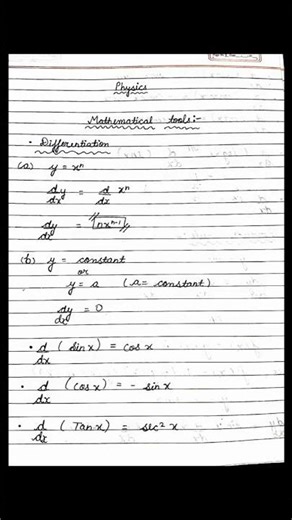 Physics
Mathematical tools:-
• Differentiation
(a) y = xⁿ
dy/dx = d/dx xⁿ
dy/dx = nxⁿ⁻¹
(b) y = constant
or
y = a (a = constant)
dy/dx = 0
• d/dx (sin x) = cos x
• d/dx (cos x) = - sin x
• d/dx (Tan x) = sec² x